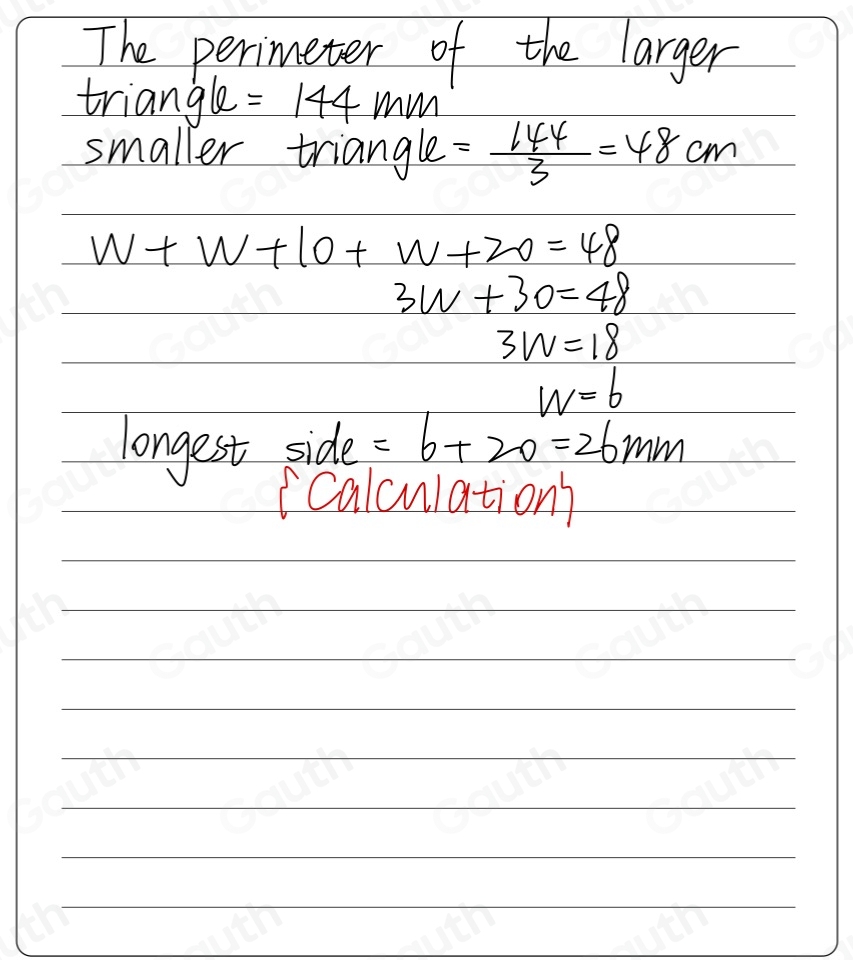 The perimeter of the larger
triangle = 144 mm
smaller triangle = 144/3 = 48 cm
W + W + 10 + W + 20 = 48
3W + 30 = 48
3W = 18
W = 6
longest side = 6 + 20 = 26mm
{Calculation}